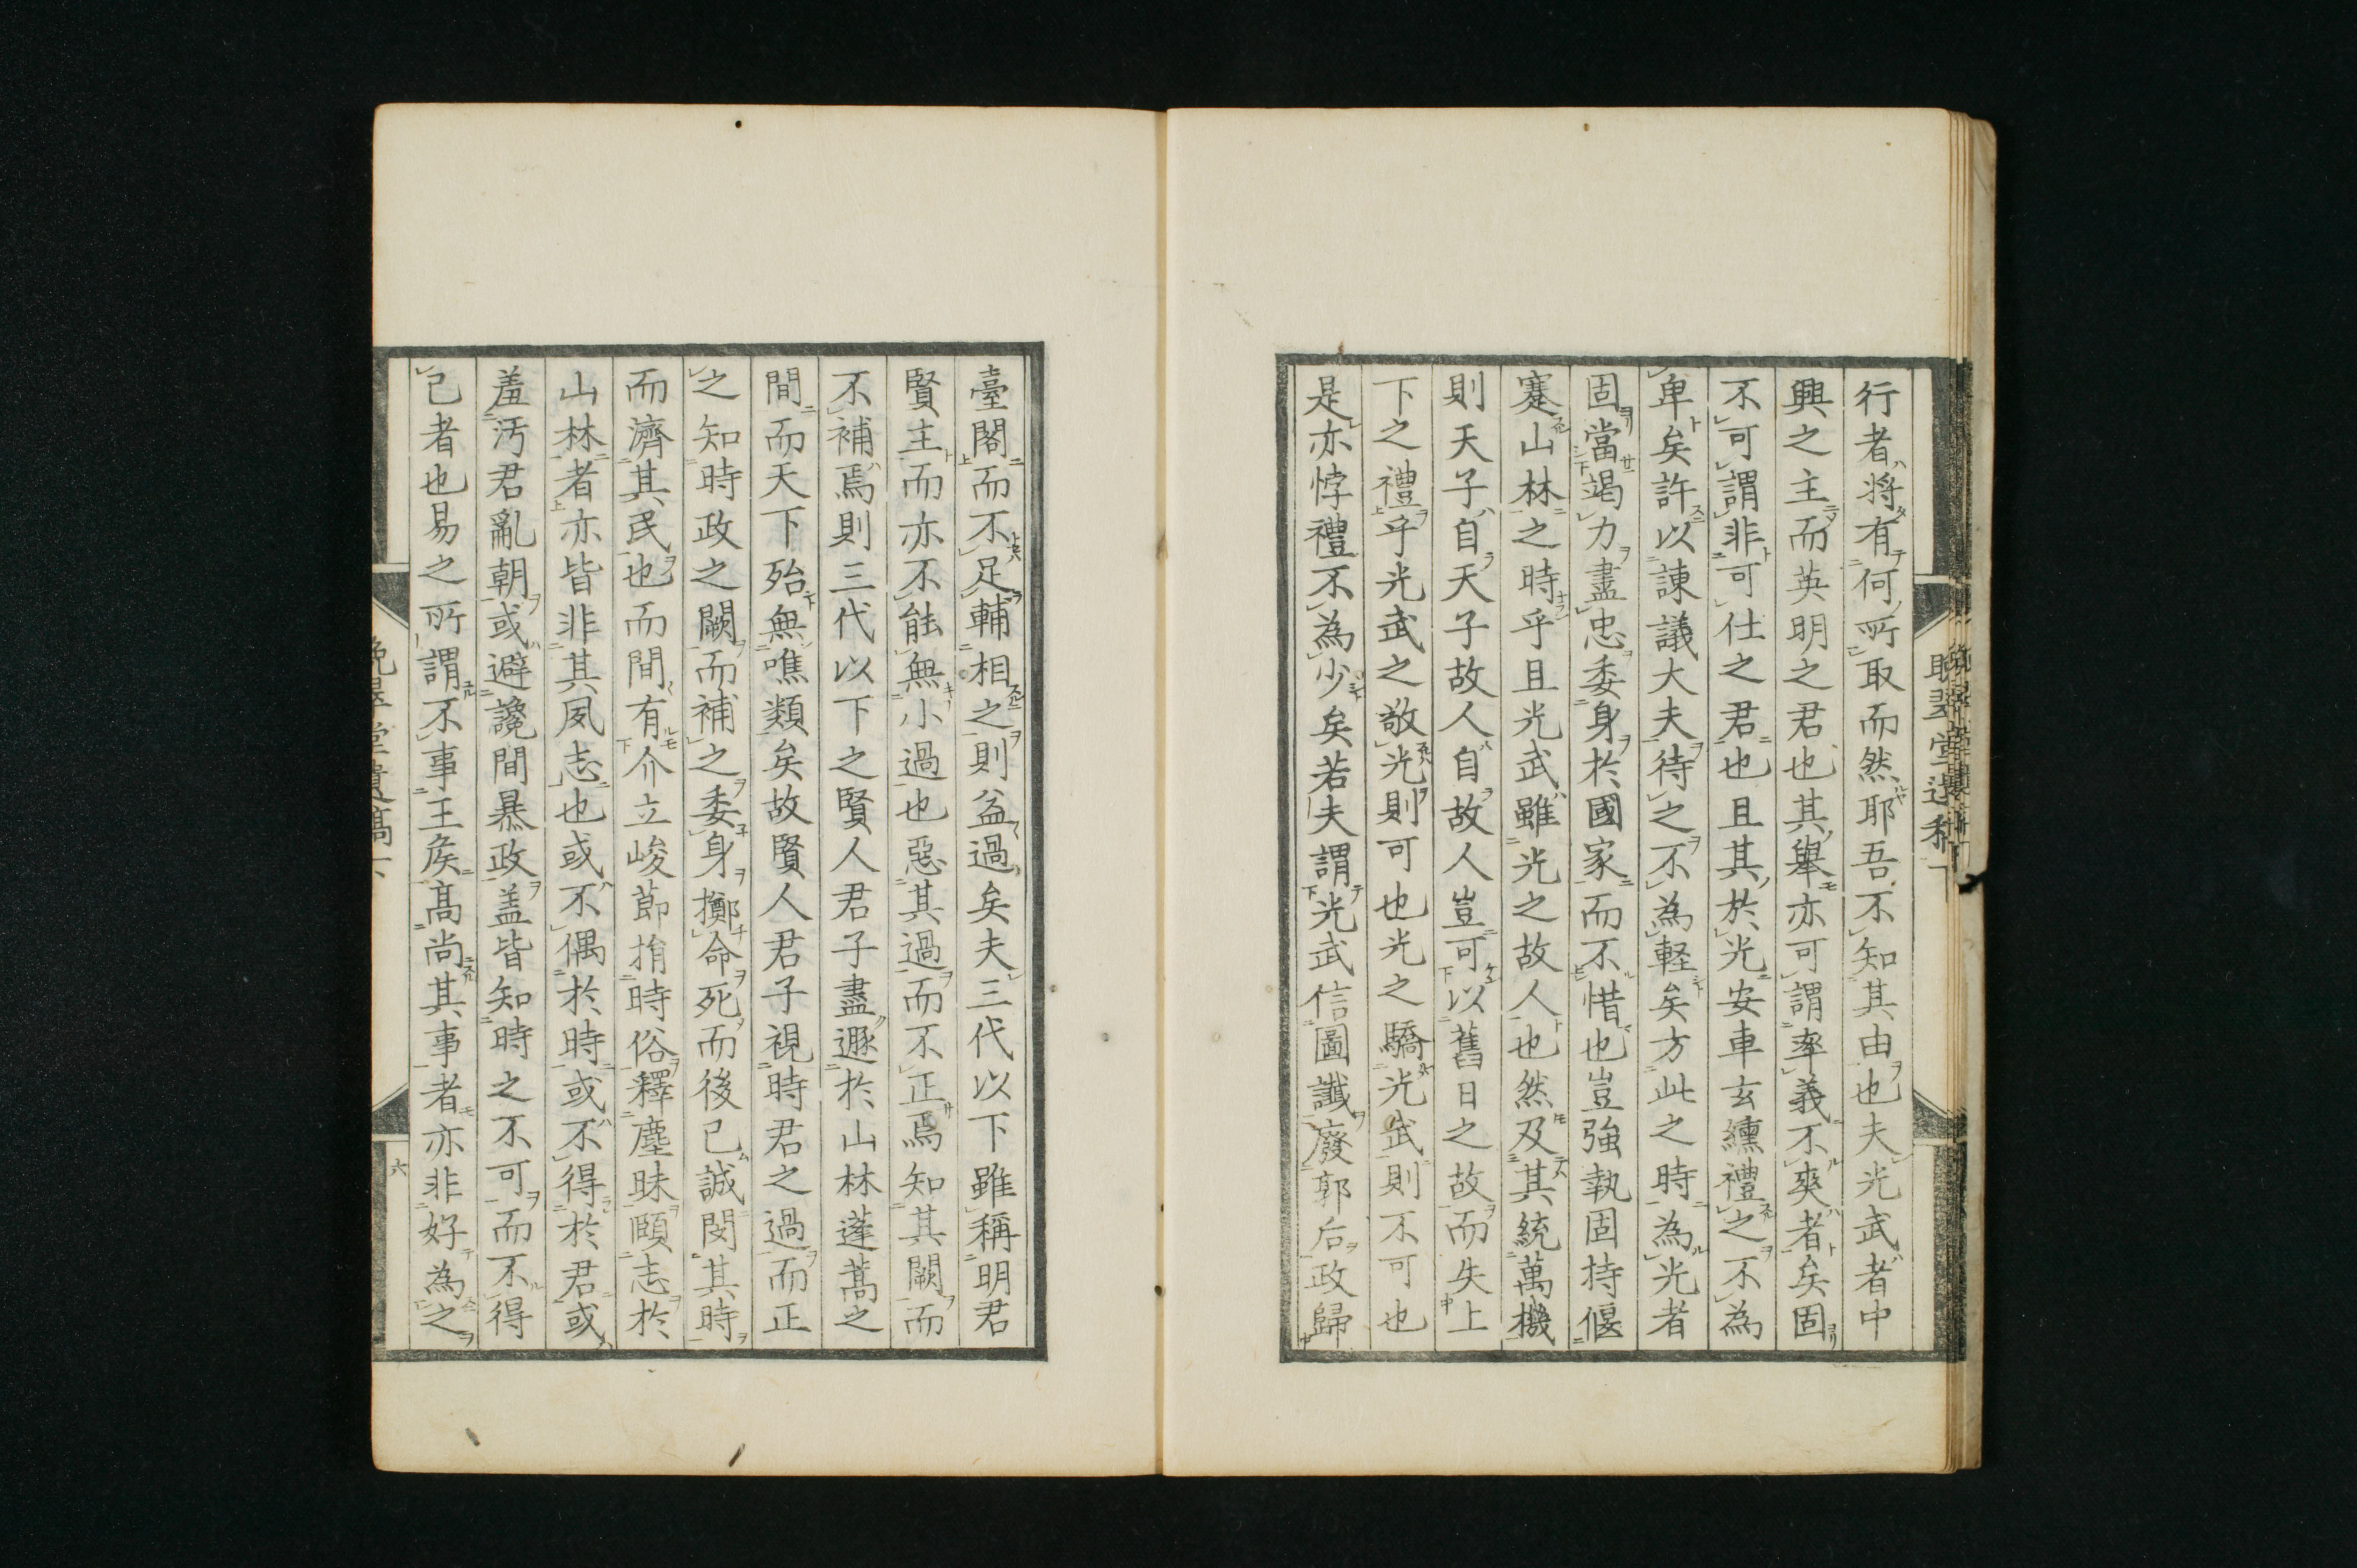 行者將有何所取而然耶吾不知其由也夫光武者中
興之主而英明之君也其舉亦可謂率義不爽者矣固
不可謂非可仕之君也且其於光安車玄纁禮之不為
卑矣許以諫議大夫待之不為軽矣方此之時為光者
固當竭力盡忠委身於國家而不惜也豈強執固持偃
蹇山林之時乎且光武雖光之故人也然及其統萬機
則天子自天子故人自故人豈可以舊日之故而失上
下之禮乎光武之敬光則可也光之驕光武則不可也
是亦悖禮不為少矣若夫謂光武信圖讖廢郭后政歸
臺閣而不足輔相之則益過矣夫三代以下雖稱明君
賢主而亦不能無小過也惡其過而不正焉知其闕而
不補焉則三代以下之賢人君子盡遯於山林蓬蒿之
間而天下殆無噍類矣故賢人君子視時君之過而正
之知時政之闕而補之委身擲命死而後已誠閔其時
而濟其民也而間有介立峻節捐時俗釋塵昧頤志於
山林者亦皆非其夙志也或不偶於時或不得於君或
羞汚君亂朝或避讒間暴政盖皆知時之不可而不得
已者也易之所謂不事王矦髙尚其事者亦非好為之
六